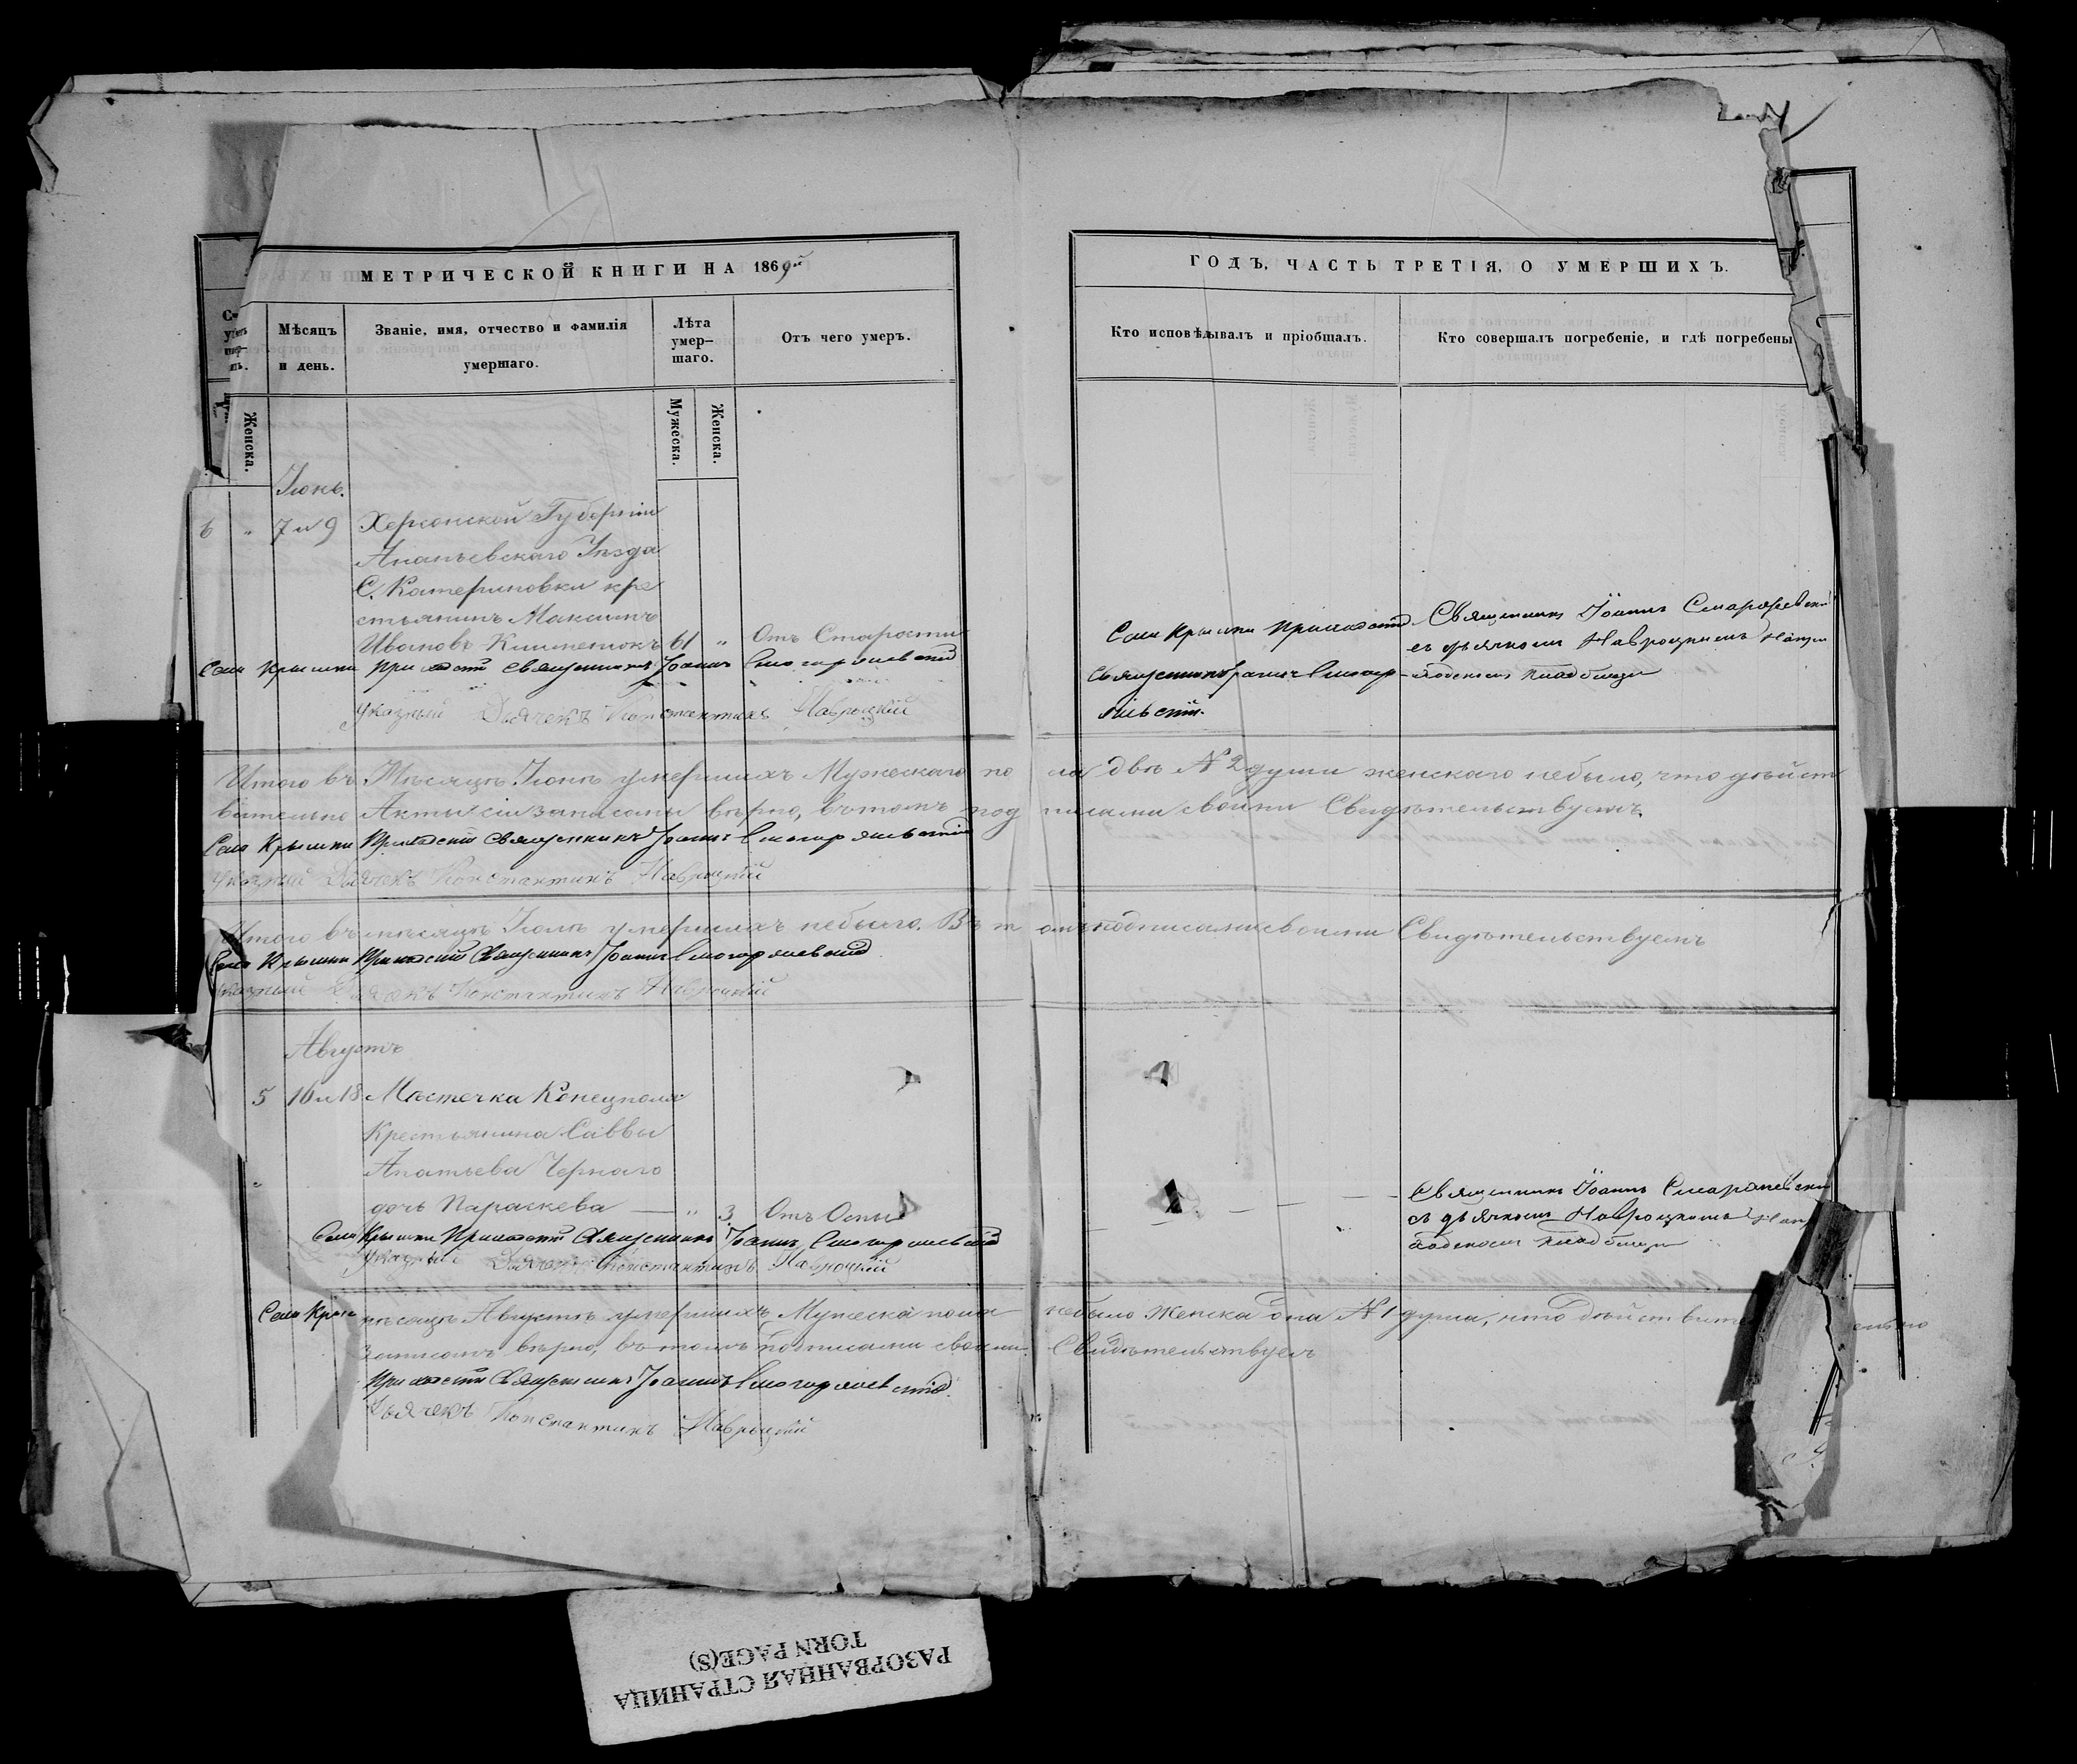 МЕТРИЧЕСКОЙ КНИГИ НА 1869й
Мѣсяцъ и день.
Званіе, имя, отчество и фамилія умершаго.
Лѣта умер-шаго.
Отъ чего умеръ.
Женска.
Мужеска.
Женска.
Іюнь.
6 " 7 и 9 Херсонской Губерніи
Ананьевскаго Уѣзда
С. Катериновки кре
стьянинъ Максимъ
Ивановъ 61 " Отъ Старости
Села Крышки Приходскій Священникъ Іоаннъ
Указный Дьячекъ Константинъ Навроцкій
Итого въ Мѣсяцѣ Іюнѣ умершихъ Мужескаго по
вительно Акты сіи записаны вѣрно, въ томъ под
Села Крышки Приходскій Священникъ Іоаннъ
Указный Дьячекъ Константинъ Навроцкій
Итого въ мѣсяцѣ Іюлѣ умершихъ небыло. Въ т
Села Крышки Приходскій Священникъ Іоаннъ
Указный Дьячекъ Константинъ Навроцкій
Августъ
5 16 и 18 Мѣстечка Конецполя
Крестьянина Саввы
Чернаго
дочь Параскева — " 3 Отъ Оспы
Села Крышки Приходскій Священникъ Іоаннъ
Указный Дьячекъ Константинъ Навроцкій
мѣсяцѣ Августѣ умершихъ Мужеска пола
записанъ вѣрно, въ томъ подписами своими
Приходскій Священникъ Іоаннъ
Дьячекъ Константинъ Навроцкій
ГОДЪ, ЧАСТЬ ТРЕТІЯ, О УМЕРШИХЪ.
Кто исповѣдывалъ и пріобщалъ.
Кто совершалъ погребеніе, и гдѣ погребены
Села Крышки Приходскій
Священникъ Іоаннъ
Священникъ Іоаннъ
съ дьячкомъ Навроцкимъ на при
ходскомъ кладбищѣ
ла двѣ № 2 души женскаго небыло, что дѣйст
писами своими Свидѣтельствуемъ.
омъ подписами своими Свидѣтельствуемъ
Священникъ Іоаннъ
съ дьячкомъ Навроцкимъ на при
ходскомъ кладбищѣ
небыло Женска одна № 1 душа, что дѣйствительно
Свидѣтельствуемъ
РАЗОРВАННАЯ СТРАНИЦА
TORN PAGE(S)